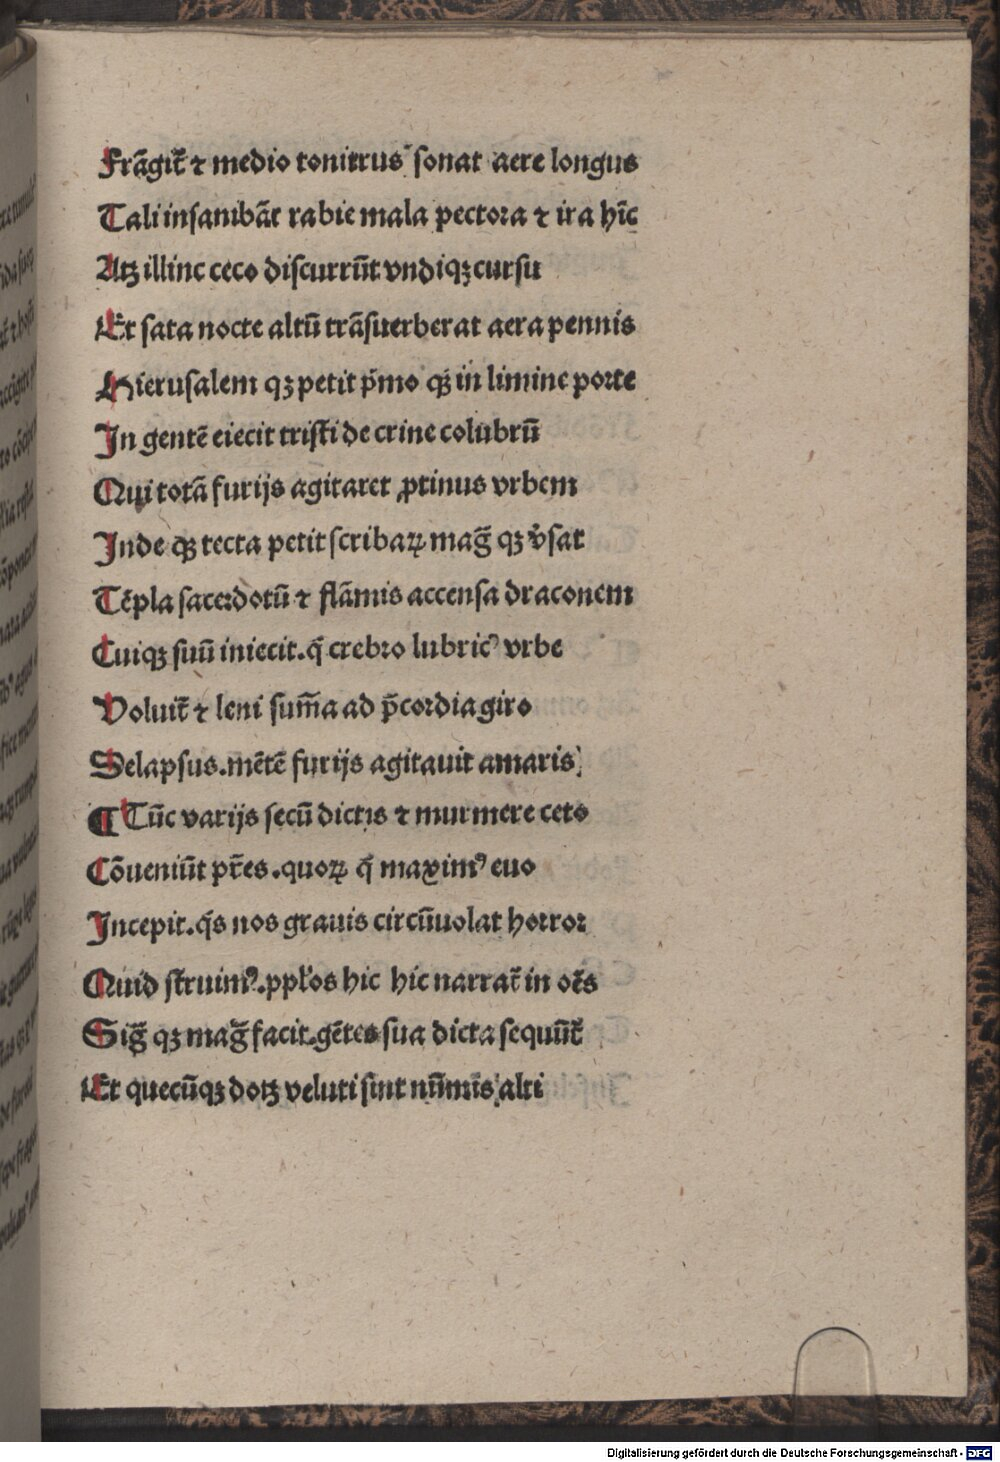 Frãgit̃ ⁊ medio tonitrus sonat aere longus
Tali insanibãt rabie mala pectora ⁊ ira hĩc
Atqꝫ illinc ceco discurrũt vndiqꝫ cursu
Et sata nocte altũ trãsuerberat aera pennis
Hierusalem qꝫ petit p̃mo qꝫ in limine porte
In gentẽ eiecit tristi de crine colubrũ
Qui totã furijs agitaret ꝓtinus vrbem
Inde qꝫ tecta petit scribaꝝ mag̃ qꝫ v̓sat
Tẽpla sacerdotũ ⁊ flãmis accensa draconem
Cuiqꝫ suũ iniecit. q̃ crebro lubricꝰ vrbe
Voluit̃ ⁊ leni sum̃a ad p̃cordia giro
Delapsus. mẽtẽ furijs agitauit amaris
¶ Tũc varijs secũ dictis ⁊ murmere ceto
Cõueniũt pr̃es. quoꝝ q̃ maximꝰ euo
Incepit. q̃s nos grauis circũuolat horror
Quid struimꝰ. ppl̓os hic hic narrat̃ in oẽs
Sig̃ qꝫ mag̃ facit. gẽtes sua dicta sequũt̃
Et quecũqꝫ dotꝫ veluti sint nũmis alti
Digitalisierung gefördert durch die Deutsche Forschungsgemeinschaft - DFG